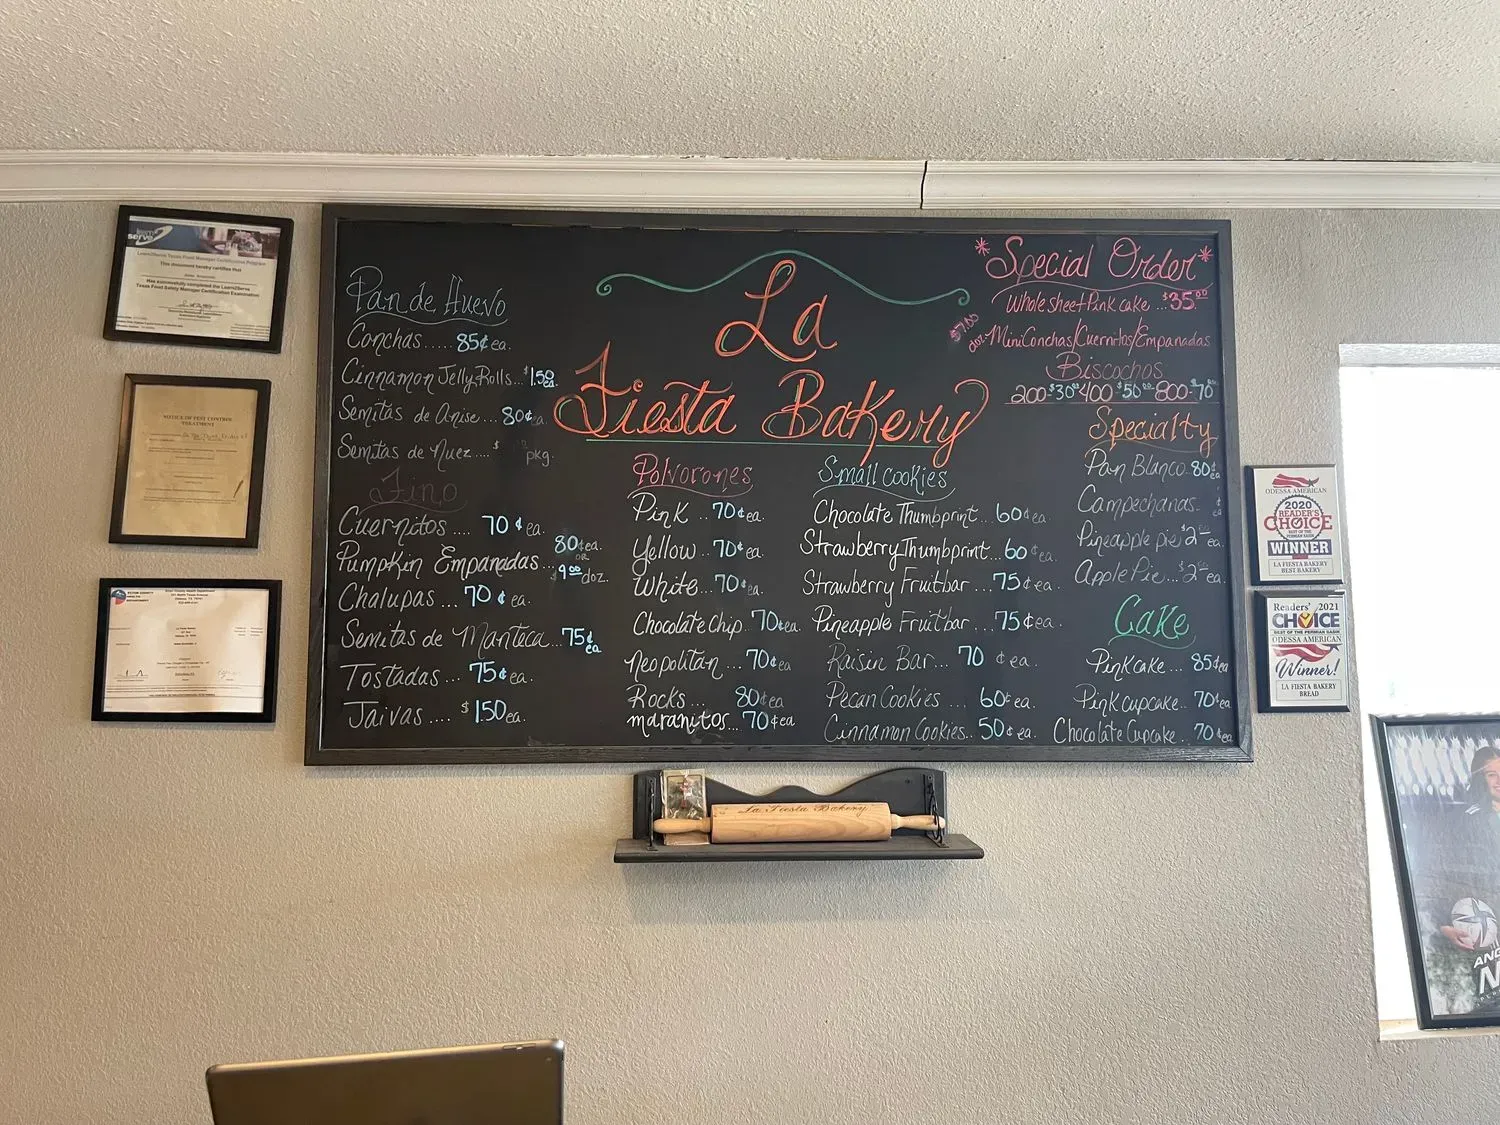 La
Fiesta Bakery
Pan de Huevo
Conchas..... 85¢ ea.
Cinnamon Jelly Rolls...$1.50 ea.
Semitas de Anise... 80¢ ea.
Semitas de Nuez....$ pkg.
Fino
Cuernitos .... 70¢ ea.
Pumpkin Empanadas... 80¢ ea.
or
$9.00 doz.
Chalupas ... 70¢ ea.
Semitas de Manteca... 75¢ ea
Tostadas ... 75¢ ea.
Jaivas .... $1.50 ea.
Polvorones
Pink .. 70¢ ea.
Yellow .. 70¢ ea.
White .. 70¢ ea.
Chocolate Chip. 70¢ ea.
Neopolitan ... 70¢ ea
Rocks... 80¢ ea
maranitos 70¢ ea
Small cookies
Chocolate Thumbprint... 60¢ ea.
Strawberry Thumbprint... 60¢ ea.
Strawberry Fruitbar ... 75¢ ea.
Pineapple Fruitbar ... 75¢ ea.
Raisin Bar... 70¢ ea.
Pecan Cookies ... 60¢ ea.
Cinnamon Cookies.. 50¢ ea.
*Special Order*
Whole sheet Pink cake ...$35.00
$7.00
doz-Mini Conchas/Cuernitos/Empanadas
Biscochos
200-$30.00 400-$50.00 800-$70
Specialty
Pan Blanco. 80¢ ea.
Campechanas.
Pineapple pie $2 ea.
Apple Pie...$2 ea.
Cake
Pink cake.. 85¢ ea
Pink cupcake.. 70¢ ea
Chocolate Cupcake. 70¢ ea
La Fiesta Bakery
Learn2Serve Texas Food Manager Certification Program
This document hereby certifies that
Has successfully completed the Learn2Serve
Texas Food Safety Manager Certification Examination
NOTICE OF PEST CONTROL
TREATMENT
ODESSA AMERICAN
2020
READER'S
CHOICE
BEST OF THE PERMIAN BASIN
WINNER
LA FIESTA BAKERY
BEST BAKERY
Readers' 2021
CHOICE
BEST OF THE PERMIAN BASIN
ODESSA AMERICAN
Winner!
LA FIESTA BAKERY
BREAD